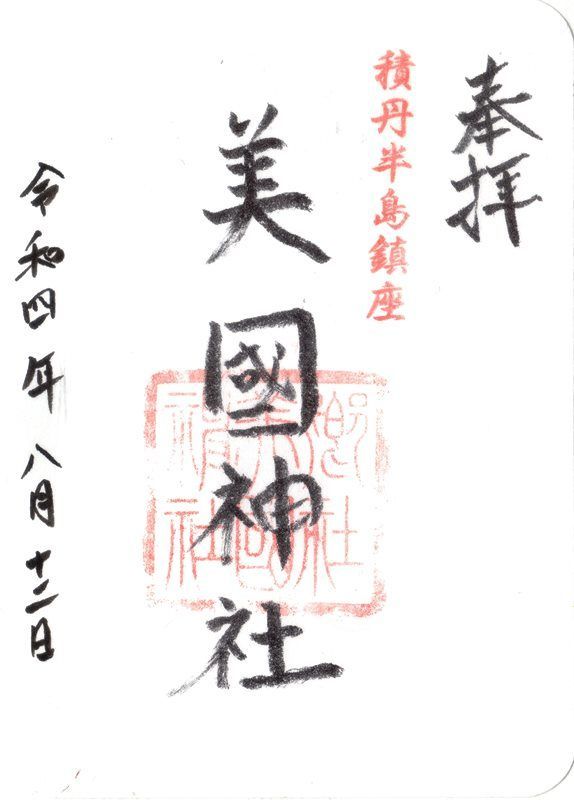 奉拝
積丹半島鎮座
美國神社
令和四年八月十二日